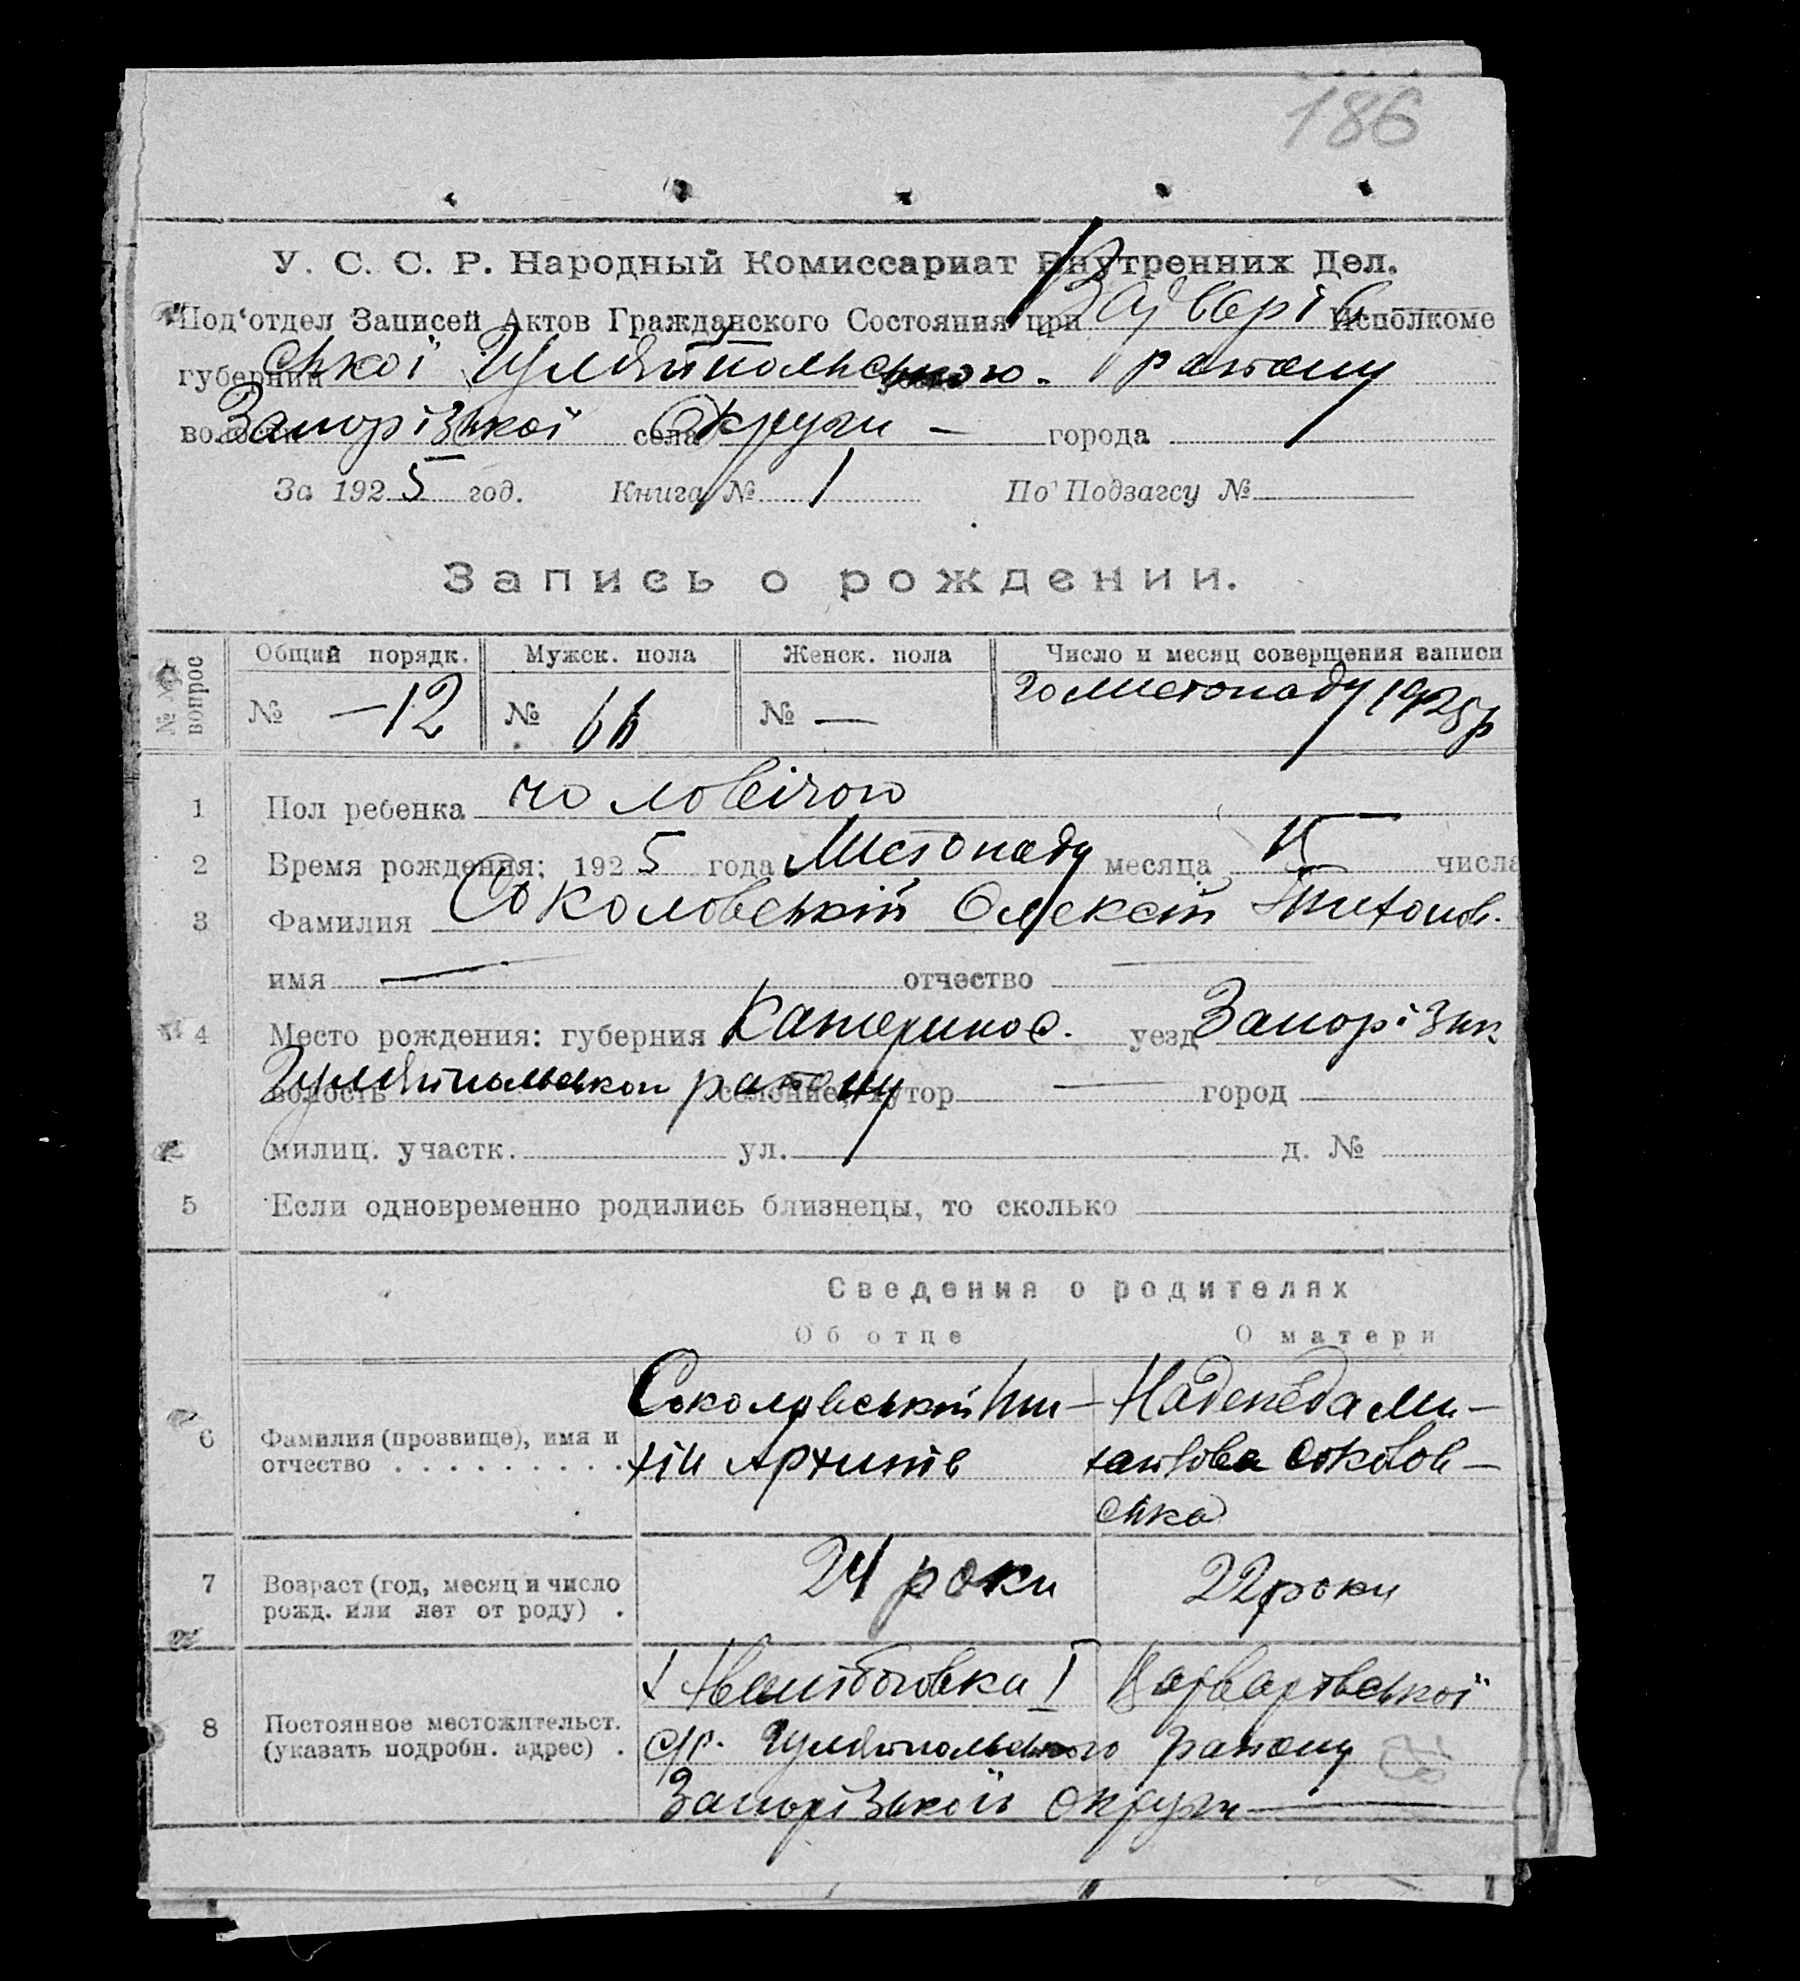 186
У. С. С. Р. Народный Комиссариат Внутренних Дел.
Под'отдел Записей Актов Гражданского Состояния при Исполкоме
губернии ської Гуляйпольського району
волости Запорізької села Округи — города
За 1925 год. Книга № 1 По Подзагсу №
Запись о рождении.
№№ вопрос Общий порядк. Мужск. пола Женск. пола Число и месяц совершения записи
№ —12 № № — 20 листопаду 1925р
1 Пол ребенка чоловічою
2 Время рождения: 1925 года Листопаду месяца числа
3 Фамилия Соколовський Олексій Тихонов.
имя — отчество —
4 Место рождения: губерния Катеринос. уезд Запорізьк
волость Гуляйпольськои району селение, хутор — город
милиц. участк. ул. д. №
5 Если одновременно родились близнецы, то сколько
Сведения о родителях
Об отце О матери
6 Фамилия (прозвище), имя и отчество Соколовський Ти- Надежда Ми-
хін Архипів хайлова Соколов-
ська
7 Возраст (год, месяц и число рожд. или лет от роду) 24 роки 22 роки
8 Постоянное местожительст. (указать подробн. адрес)
с/р. Гуляйпольського району
Запорізької округи —